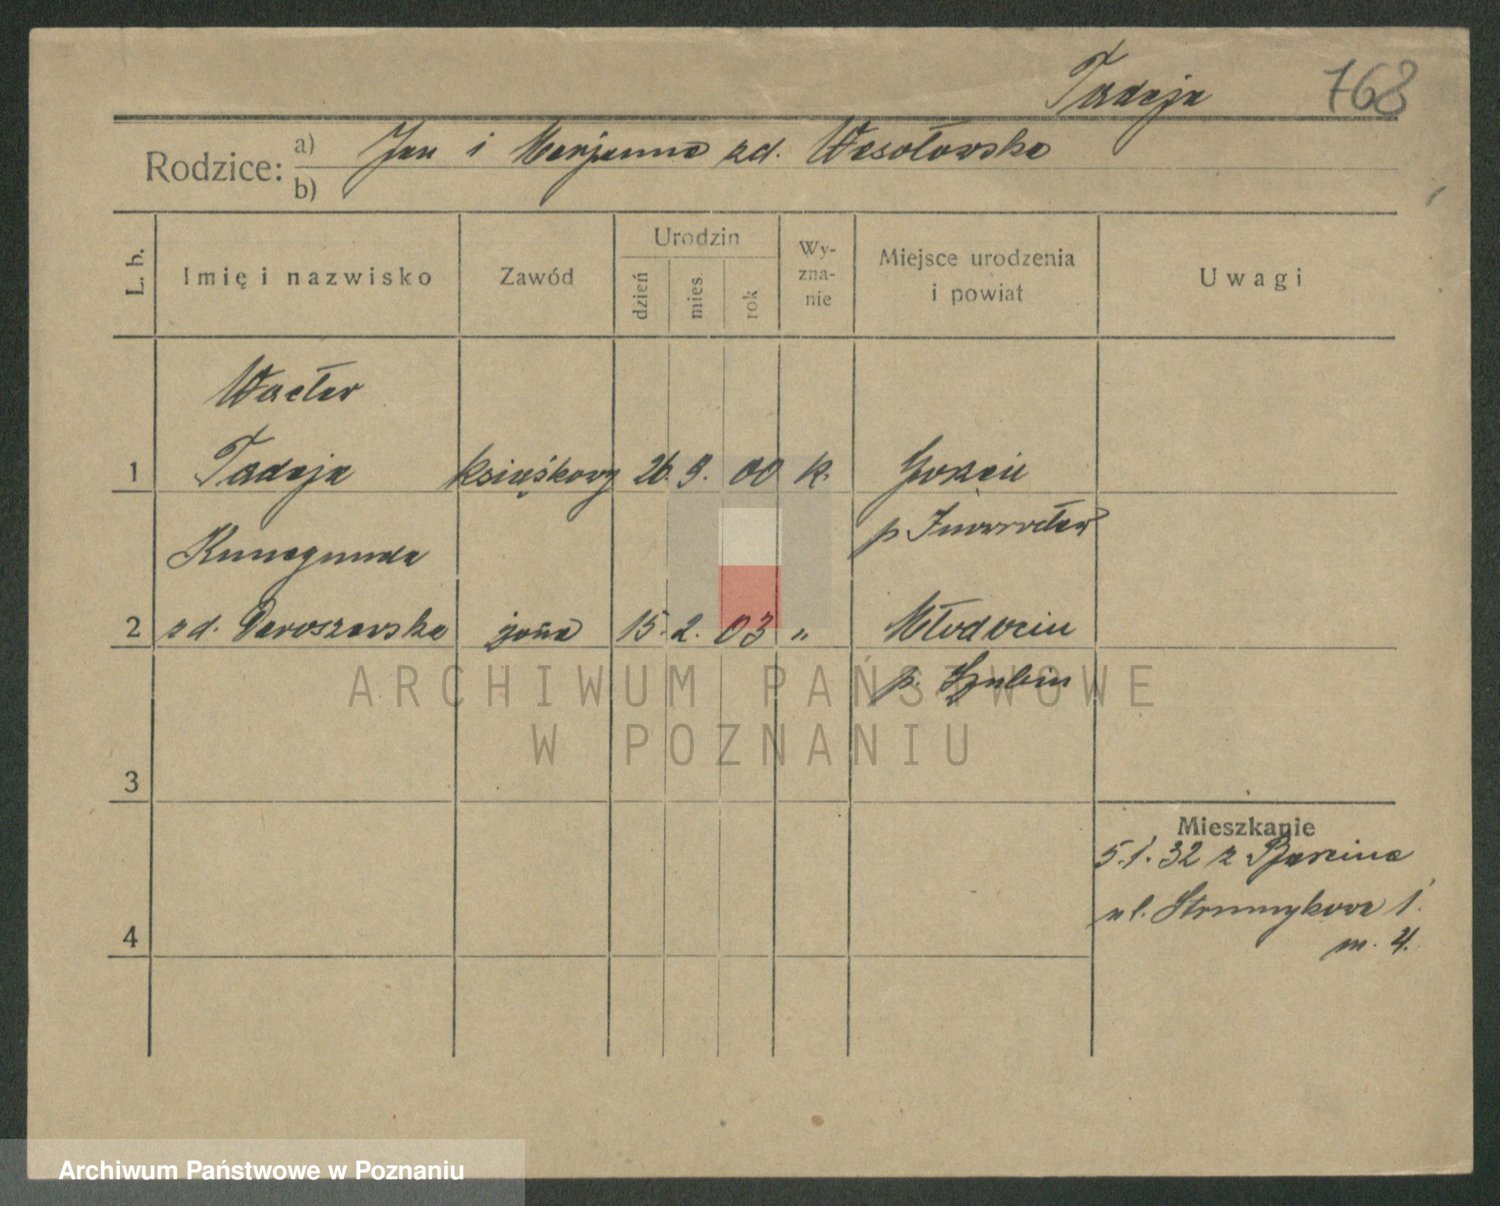 Tadeja 768
Rodzice: a) Jan i Marjanna zd. Wesołowska
b)
L. b. Imię i nazwisko Zawód Urodzin dzień mies. rok Wy-zna-nie Miejsce urodzenia i powiat Uwagi
Wacław
1 Tadeja książkowy 26. 9. 00 k.
p Inowrocław
Kunegunda
2 zd. Daroszewska żona 15. 2. 03 „
p. Szubin
3
Mieszkanie
5.1.32 z Barcina
ul. Strumykowa 1.
4
m. 4.
ARCHIWUM PAŃSTWOWE
W POZNANIU
Archiwum Państwowe w Poznaniu